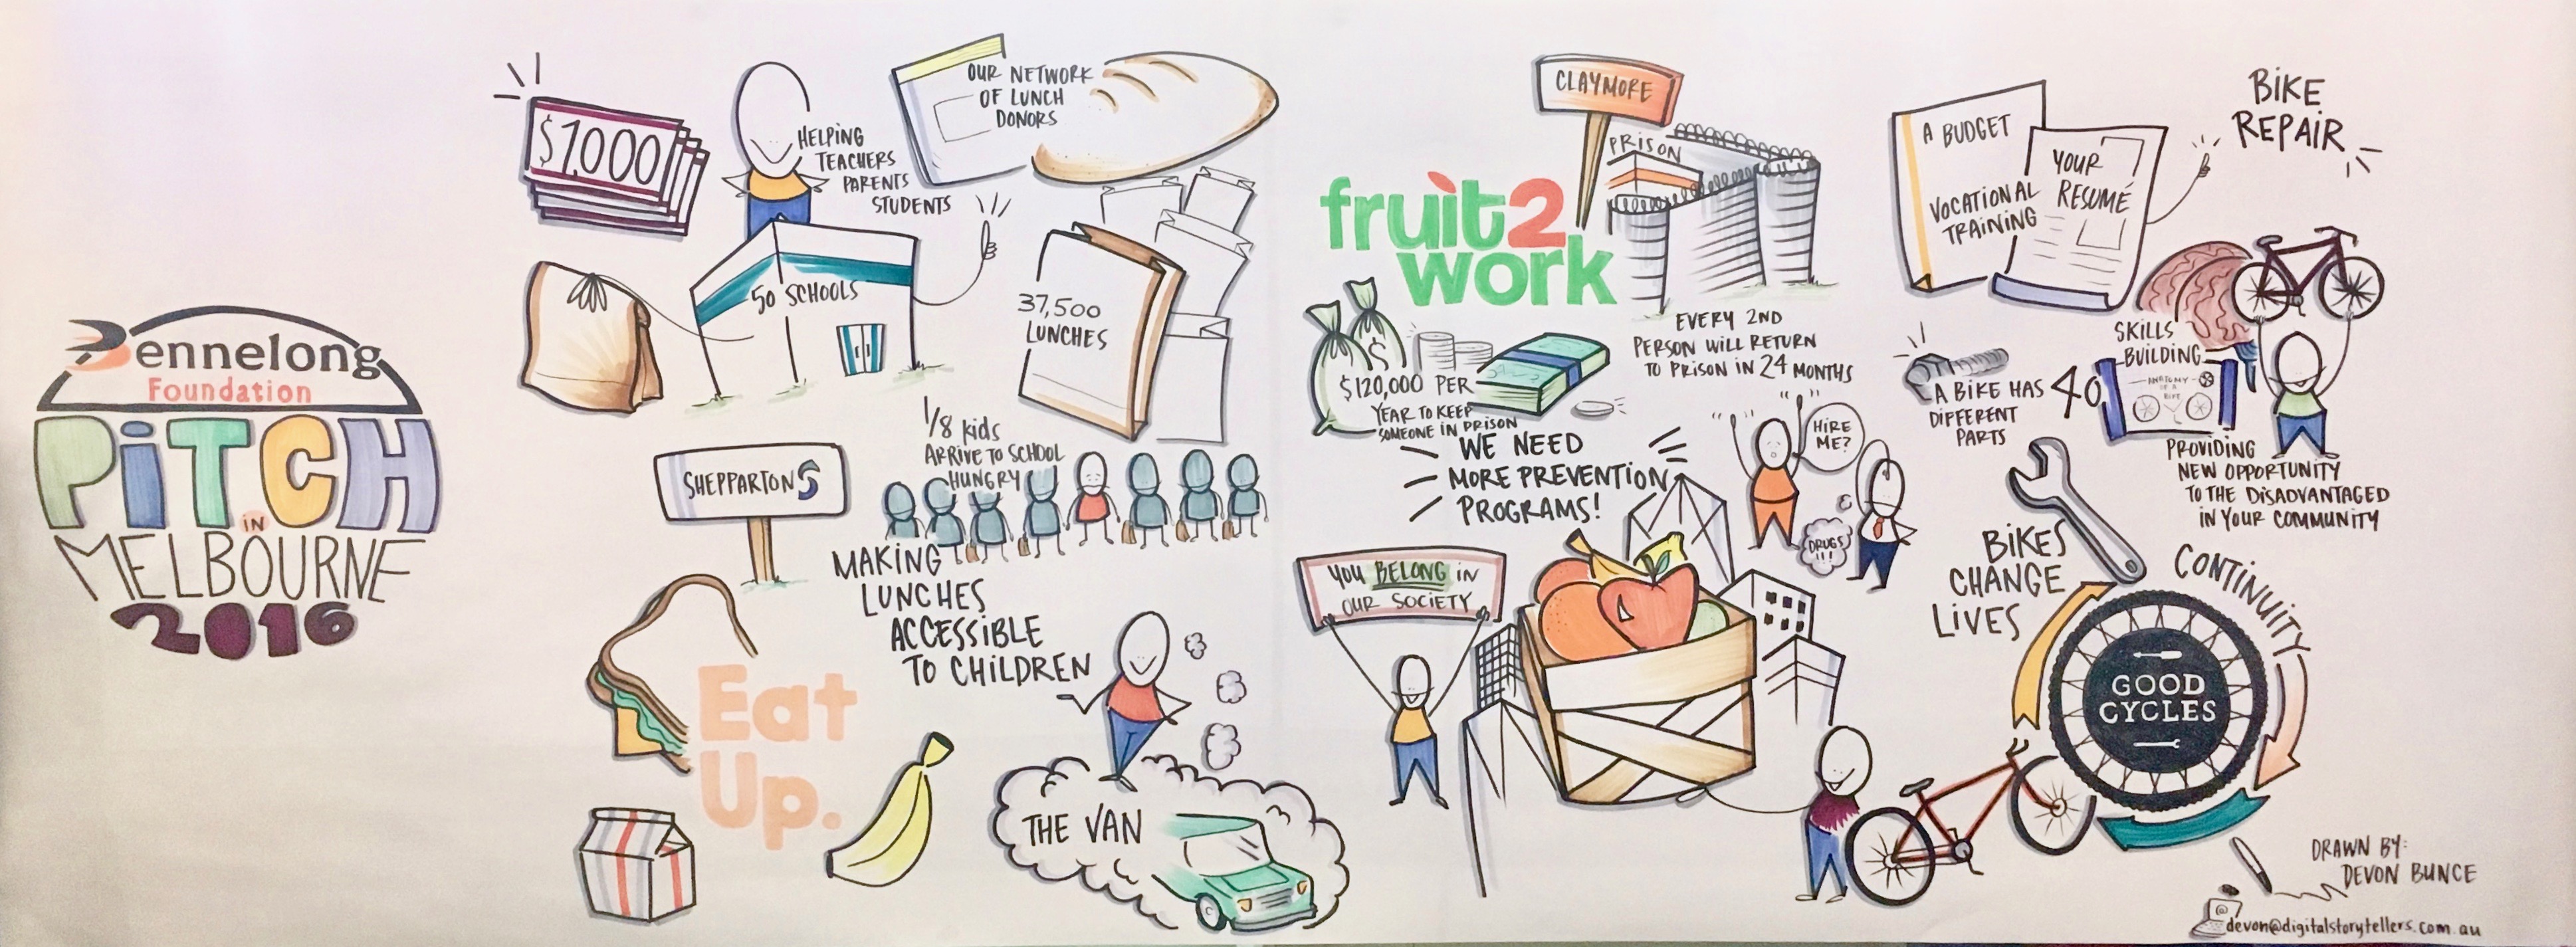 Bennelong
Foundation
PiTCH
IN
MELBOURNE
2016
$1000
HELPING
TEACHERS
PARENTS
STUDENTS
OUR NETWORK
OF LUNCH
DONORS
50 SCHOOLS
37,500
LUNCHES
SHEPPARTON
1/8 kids
ARRIVE TO SCHOOL
HUNGRY
MAKING
LUNCHES
ACCESSIBLE
TO CHILDREN
Eat
Up.
THE VAN
CLAYMORE
PRISON
fruit2
work
$120,000 PER
YEAR TO KEEP
SOMEONE IN PRISON
EVERY 2ND
PERSON WILL RETURN
TO PRISON IN 24 MONTHS
WE NEED
MORE PREVENTION
PROGRAMS!
HIRE
ME?
DRUGS
!!!
YOU BELONG iN
OUR SOCIETY
A BUDGET
VOCATIONAL
TRAINING
YOUR
RESUMÉ
BiKE
REPAiR
SKILLS
BUILDING
A BIKE HAS 40
DIFFERENT
PARTS
ANATOMY
OF A
BIKE
PROVIDING
NEW OPPORTUNITY
TO THE DISADVANTAGED
IN YOUR COMMUNITY
BiKES
CHANGE
LiVES
CONTINUITY
GOOD
CYCLES
DRAWN BY:
DEVON BUNCE
@
devon@digitalstorytellers.com.au